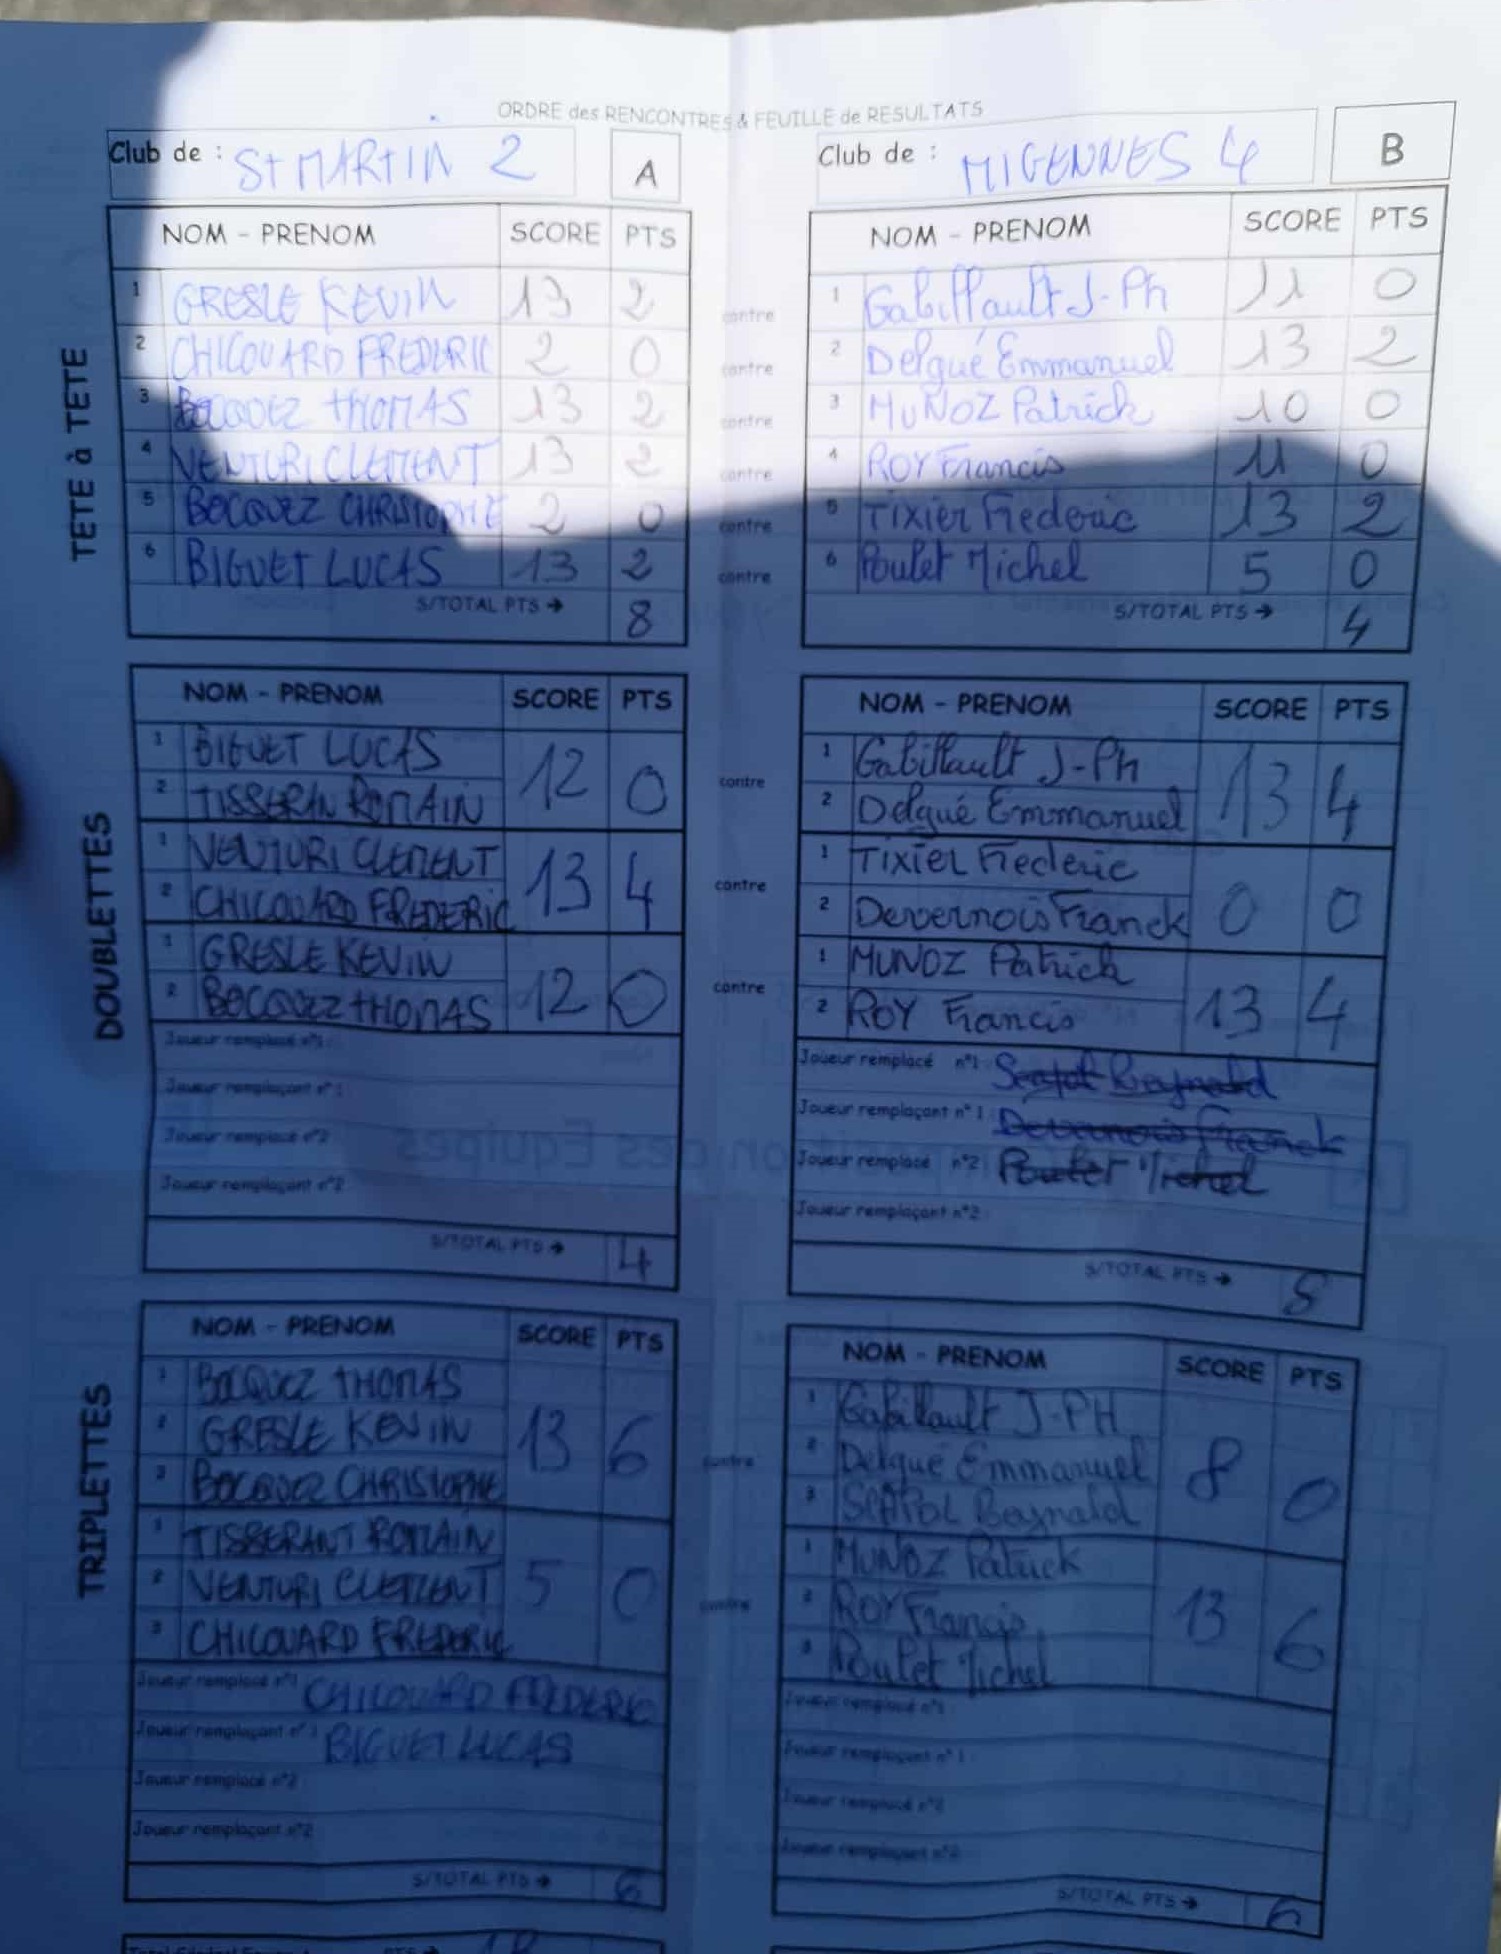 ORDRE des RENCONTRES & FEUILLE de RESULTATS
Club de : St MARTIN 2 A
Club de : MIGENNES 4 B
TETE à TETE
NOM - PRENOM SCORE PTS NOM - PRENOM SCORE PTS
1 GRESLE KEVIN 13 2 contre 1 Gabillault J-Ph 11 0
2 CHICOUARD FREDERIC 2 0 contre 2 Delgué Emmanuel 13 2
3 BOCQUEZ THOMAS 13 2 contre 3 MUNOZ Patrick 10 0
4 VENTURI CLEMENT 13 2 contre 4 ROY Francis 11 0
5 BOCQUEZ CHRISTOPHE 2 0 contre 5 TIXIER Frederic 13 2
6 BIGUET LUCAS 13 2 contre 6 Poulet Michel 5 0
S/TOTAL PTS → 8 S/TOTAL PTS → 4
DOUBLETTES
NOM - PRENOM SCORE PTS NOM - PRENOM SCORE PTS
1 BIGUET LUCAS 12 0 contre 1 Gabillault J-Ph 13 4
2 TISSERAN ROMAIN 2 Delgué Emmanuel
1 VENTURI CLEMENT 13 4 contre 1 TIXIER Frederic 0 0
2 CHICOUARD FREDERIC 2 Devernois Franck
1 GRESLE KEVIN 12 0 contre 1 MUNOZ Patrick 13 4
2 BOCQUEZ THOMAS 2 ROY Francis
Joueur remplacé n°1 : Joueur remplacé n°1 :
Joueur remplaçant n° 1 : Joueur remplaçant n° 1 : Devernois Franck
Joueur remplacé n°2 Joueur remplacé n°2 : Poulet Michel
Joueur remplaçant n°2 Joueur remplaçant n°2 :
S/TOTAL PTS → 4 S/TOTAL PTS → 8
TRIPLETTES
NOM - PRENOM SCORE PTS NOM - PRENOM SCORE PTS
1 BOCQUEZ THOMAS 13 6 contre 1 Gabillault J-PH 8 0
2 GRESLE KEVIN 2 Delgué Emmanuel
3 BOCQUEZ CHRISTOPHE 3
1 TISSERANT ROMAIN 5 0 contre 1 MUNOZ Patrick 13 6
2 VENTURI CLEMENT 2 ROY Francis
3 CHICOUARD FREDERIC 3 Poulet Michel
Joueur remplacé n°1 CHICOUARD FREDERIC Joueur remplacé n°1
Joueur remplaçant n° 1 BIGUET LUCAS Joueur remplaçant n° 1
Joueur remplacé n°2 Joueur remplacé n°2
Joueur remplaçant n°2 Joueur remplaçant n°2
S/TOTAL PTS → 6 S/TOTAL PTS → 6
PTS →